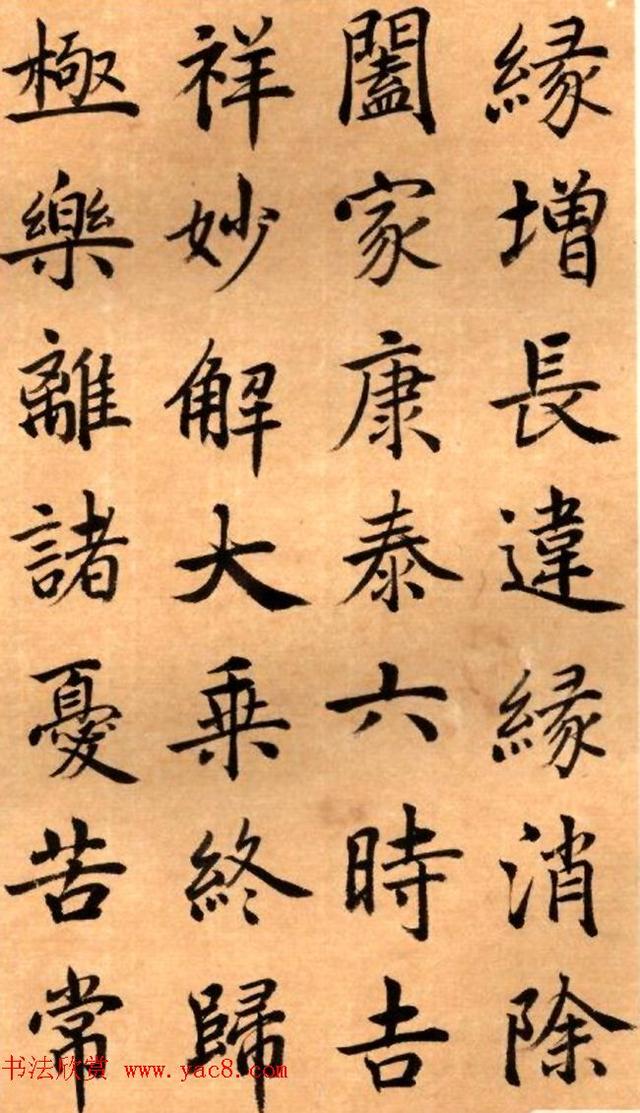 緣增長違緣消除
闔家康泰六時吉
祥妙解大乗終歸
極樂離諸憂苦常
书法欣赏 www.yac8.com